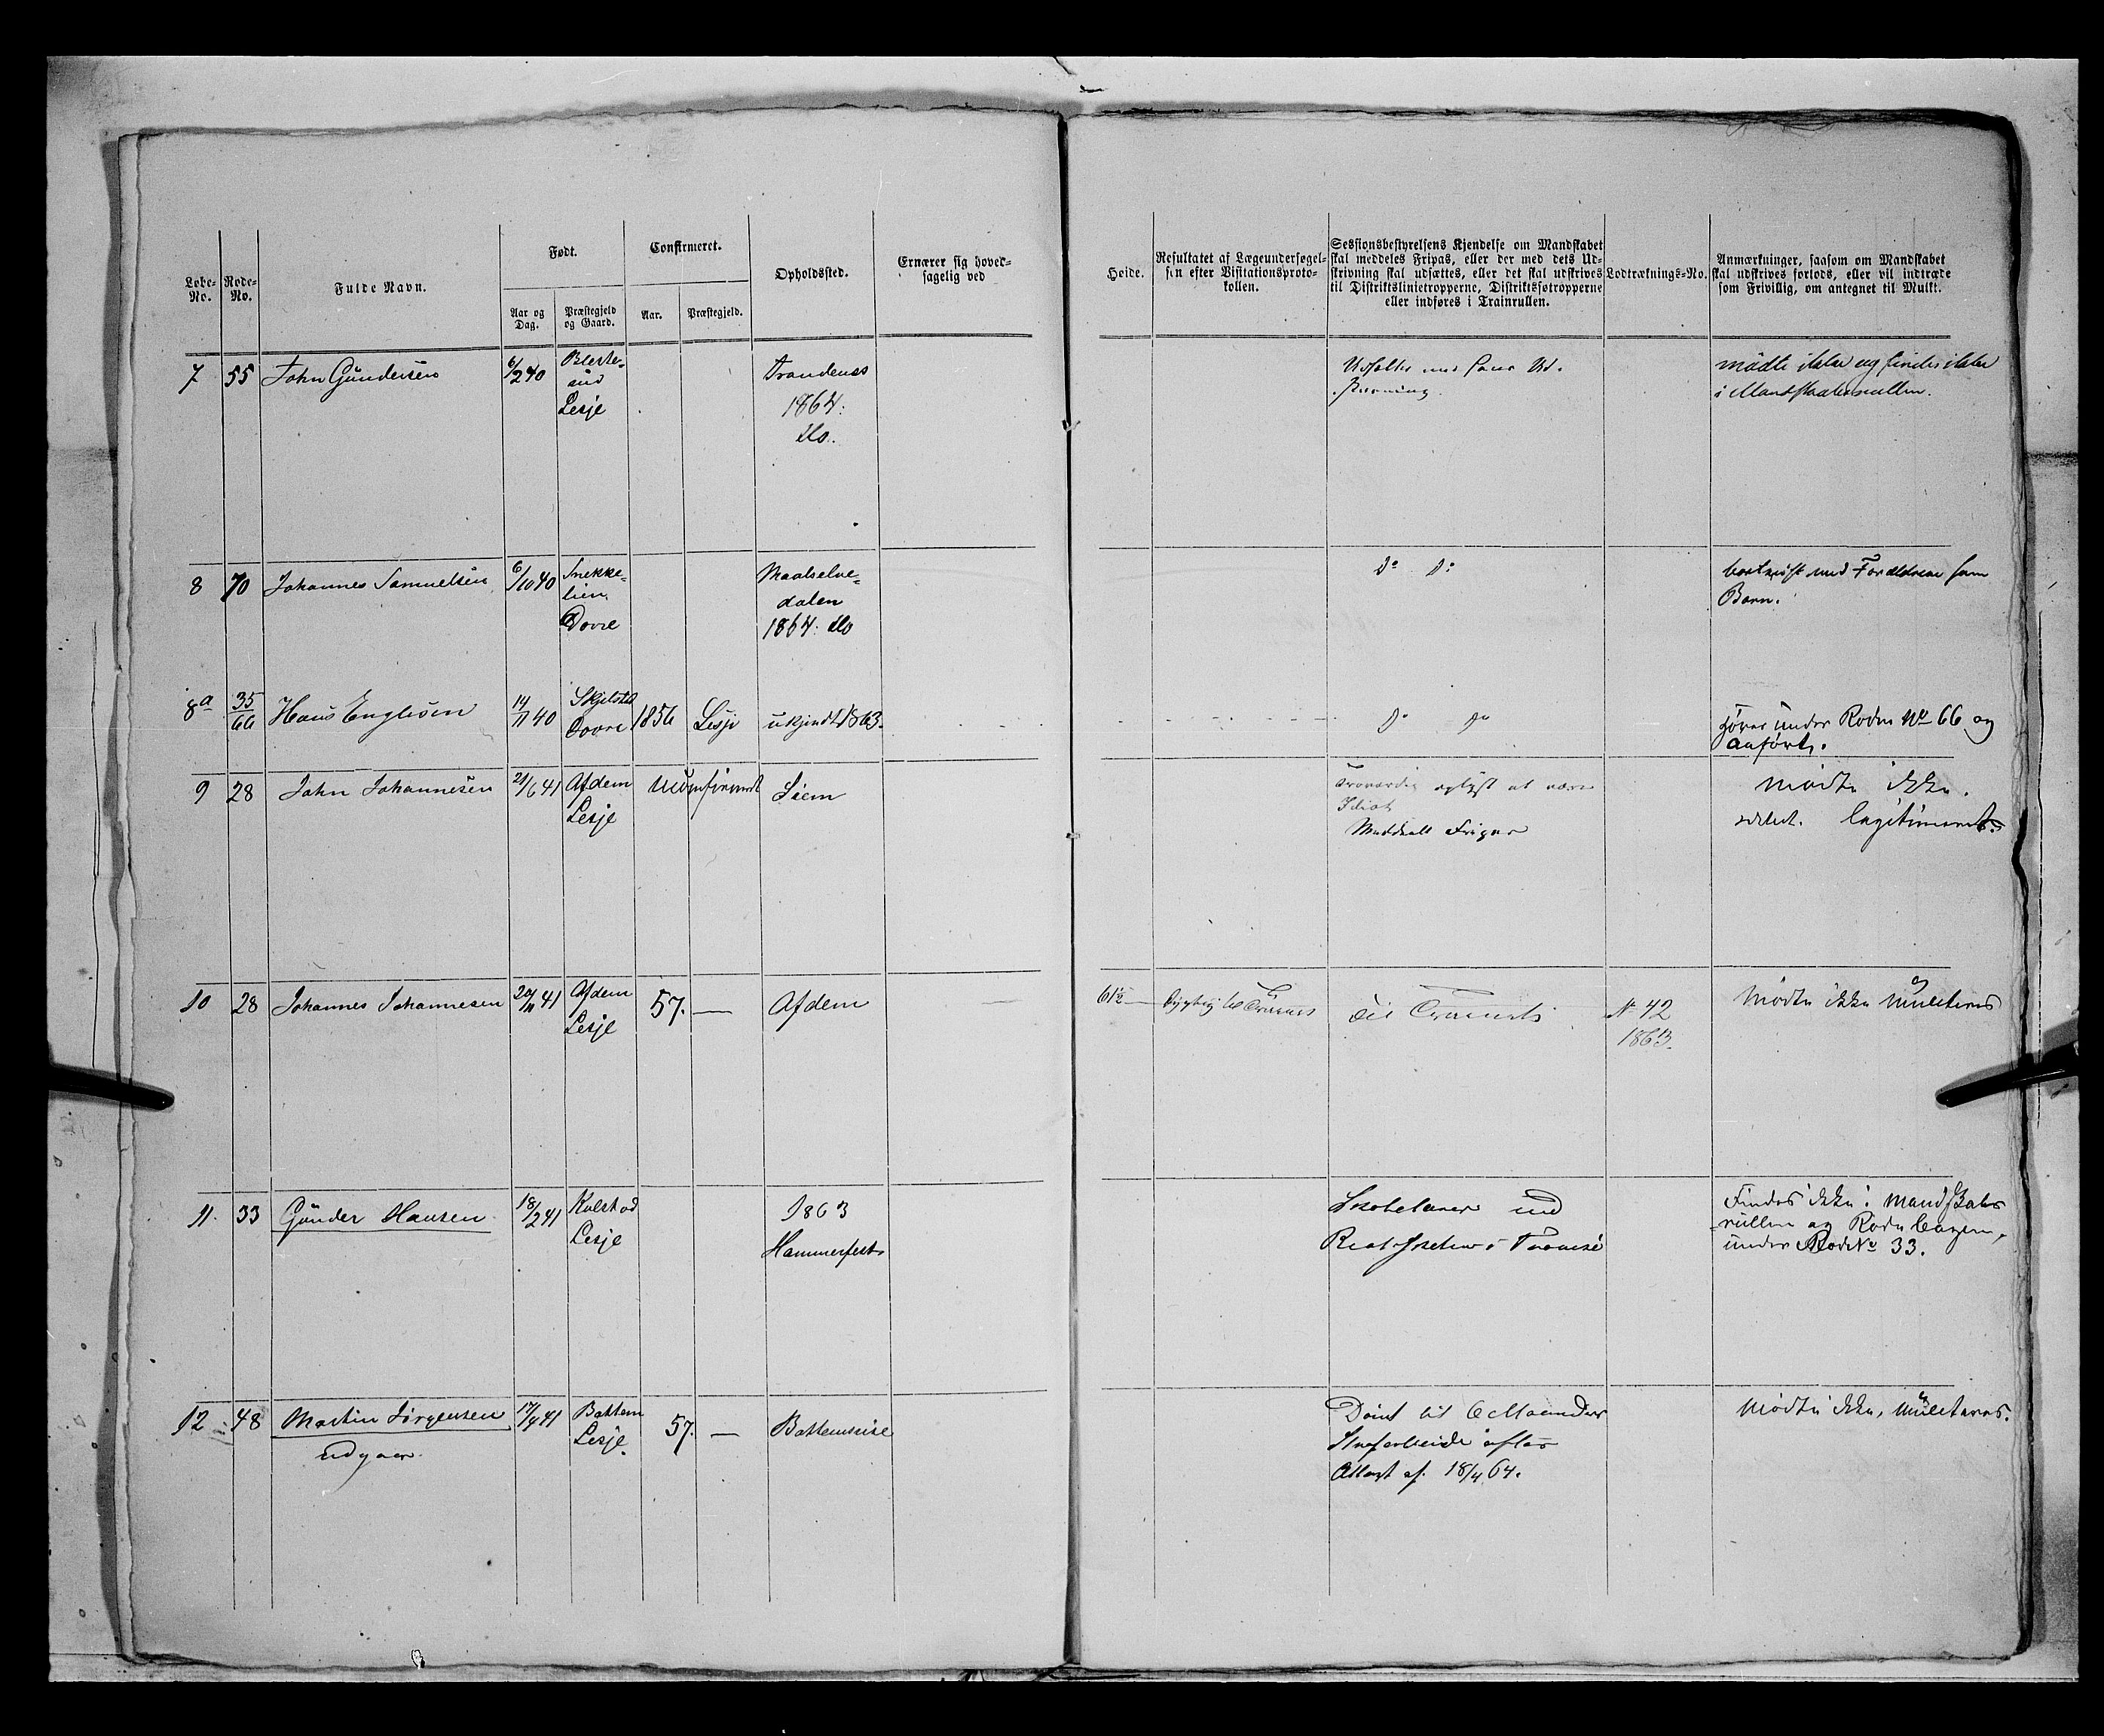 Løbe-No.
Rode-No.
Fulde Navn.
Født.
Aar og Dag.
Præstegjeld og Gaard.
Confirmeret.
Aar.
Præstegjeld.
Opholdssted.
Ernærer sig hoved-
sagelig ved
Høide.
Resultatet af Lægeundersøgel-
sen efter Visitationsproto-
kollen.
Sessionsbestyrelsens Kjendelse om Mandskabet
skal meddeles Fripas, eller der med dets Ud-
skrivning skal udsættes, eller det skal udskrives
til Distriktslinietropperne, Distriktsfotropperne
eller indføres i Trainrullen.
Lodtræknings-No.
Anmærkninger, saasom om Mandskabet
skal udskrives forlods, eller vil indtræde
som Frivillig, om antegnet til Mulkt.
7 55 John Gundersen 6/2 40
Lesje
Trondenæs
1864.
do.
mødte ikke og findes ikke
i Mandskabsrullen.
8 70 Johannes Samuelsen 6/10 40
Snekke-
lien
Dovre
Maalselve-
dalen
1864: do
Do Do
bortreist med Forældrene som
Barn.
8a 35/66 Hans Englesen 14/11 40
Skjelstad
Dovre
1856 Lesje ukjendt 1863.
Do Do
under Roden No 66 og
anført.
9 28 John Johannesen 21/6 41
Afdem
Lesje
Ukonfirmeret
Liem
Troværdig oplyst at være
Idiot
Meddeelt Fripas
Mødte ikke.
legitimeret.
10 28 Johannes Johannesen 20/11 41
Afdem
Lesje
57. — Afdem
61½ — Dygtig til Trainet
Til Trainet
No 42
1863.
Mødte ikke mulcteres
11. 33 Gunder Hansen 18/2 41
Kolstad
Lesje
1863
Hammerfest
Skolelærer ved
Realskolen i Tromsø
Findes ikke i Mandskabs
rullen og Rodebogen,
under Rode No 33.
12 48 Martin Jørgensen 17/4 41
udgaar.
Bottem
Lesje.
57. — Bottemseie
Dømt til 6 Maaneder
Strafarbeide efter
Attest af 18/4 64.
Mødte ikke, mulcteres.